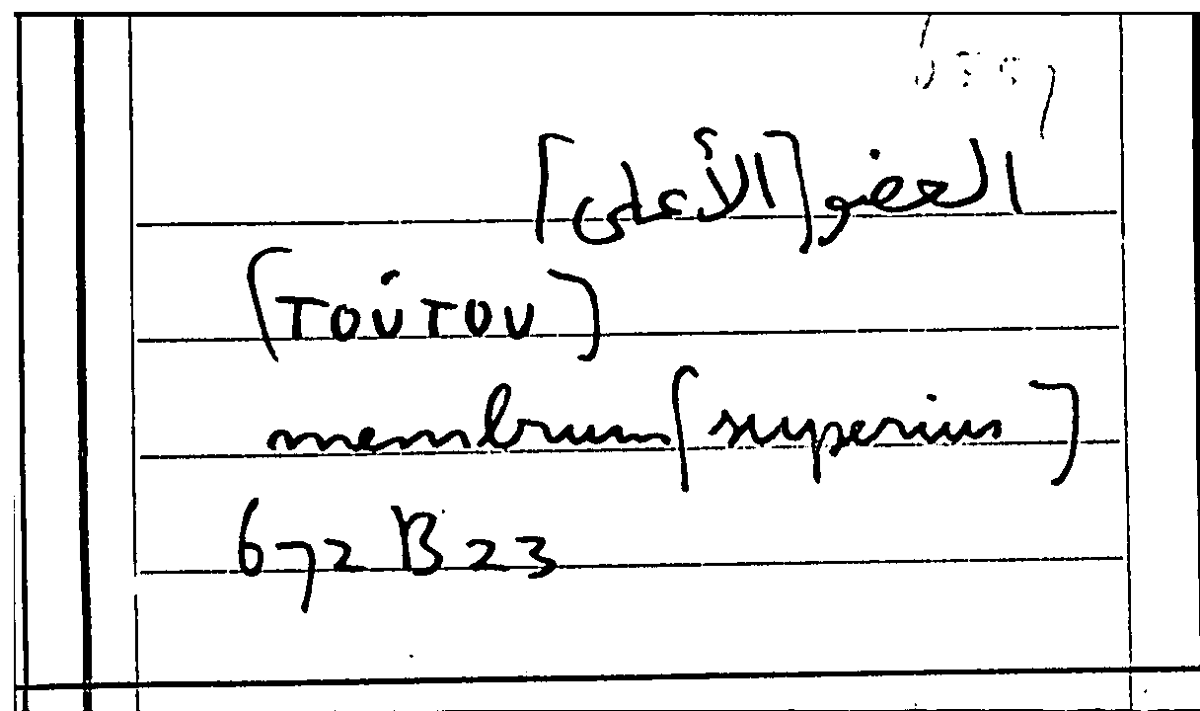 العضو [الأعلى]
[τούτου]
membrum [superius]
672 B 23